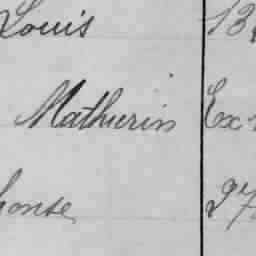 Louis 13
Mathurin Ex
honse 27